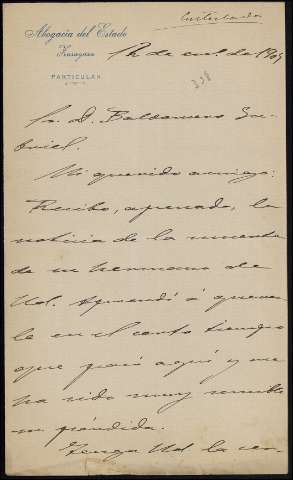 Contestada
Abogacía del Estado
Zaragoza
PARTICULAR
12 de enl. de 1905
Sr. D. Baldomero Ga-
briel.
Mi querido amigo:
Recibo, apenado, la
noticia de la muerte
de un hermano de
Ud. Aprendí á querer-
le en el corto tiempo
que pasó aquí y me
ha sido muy sensible
su pérdida.
Tenga Ud la